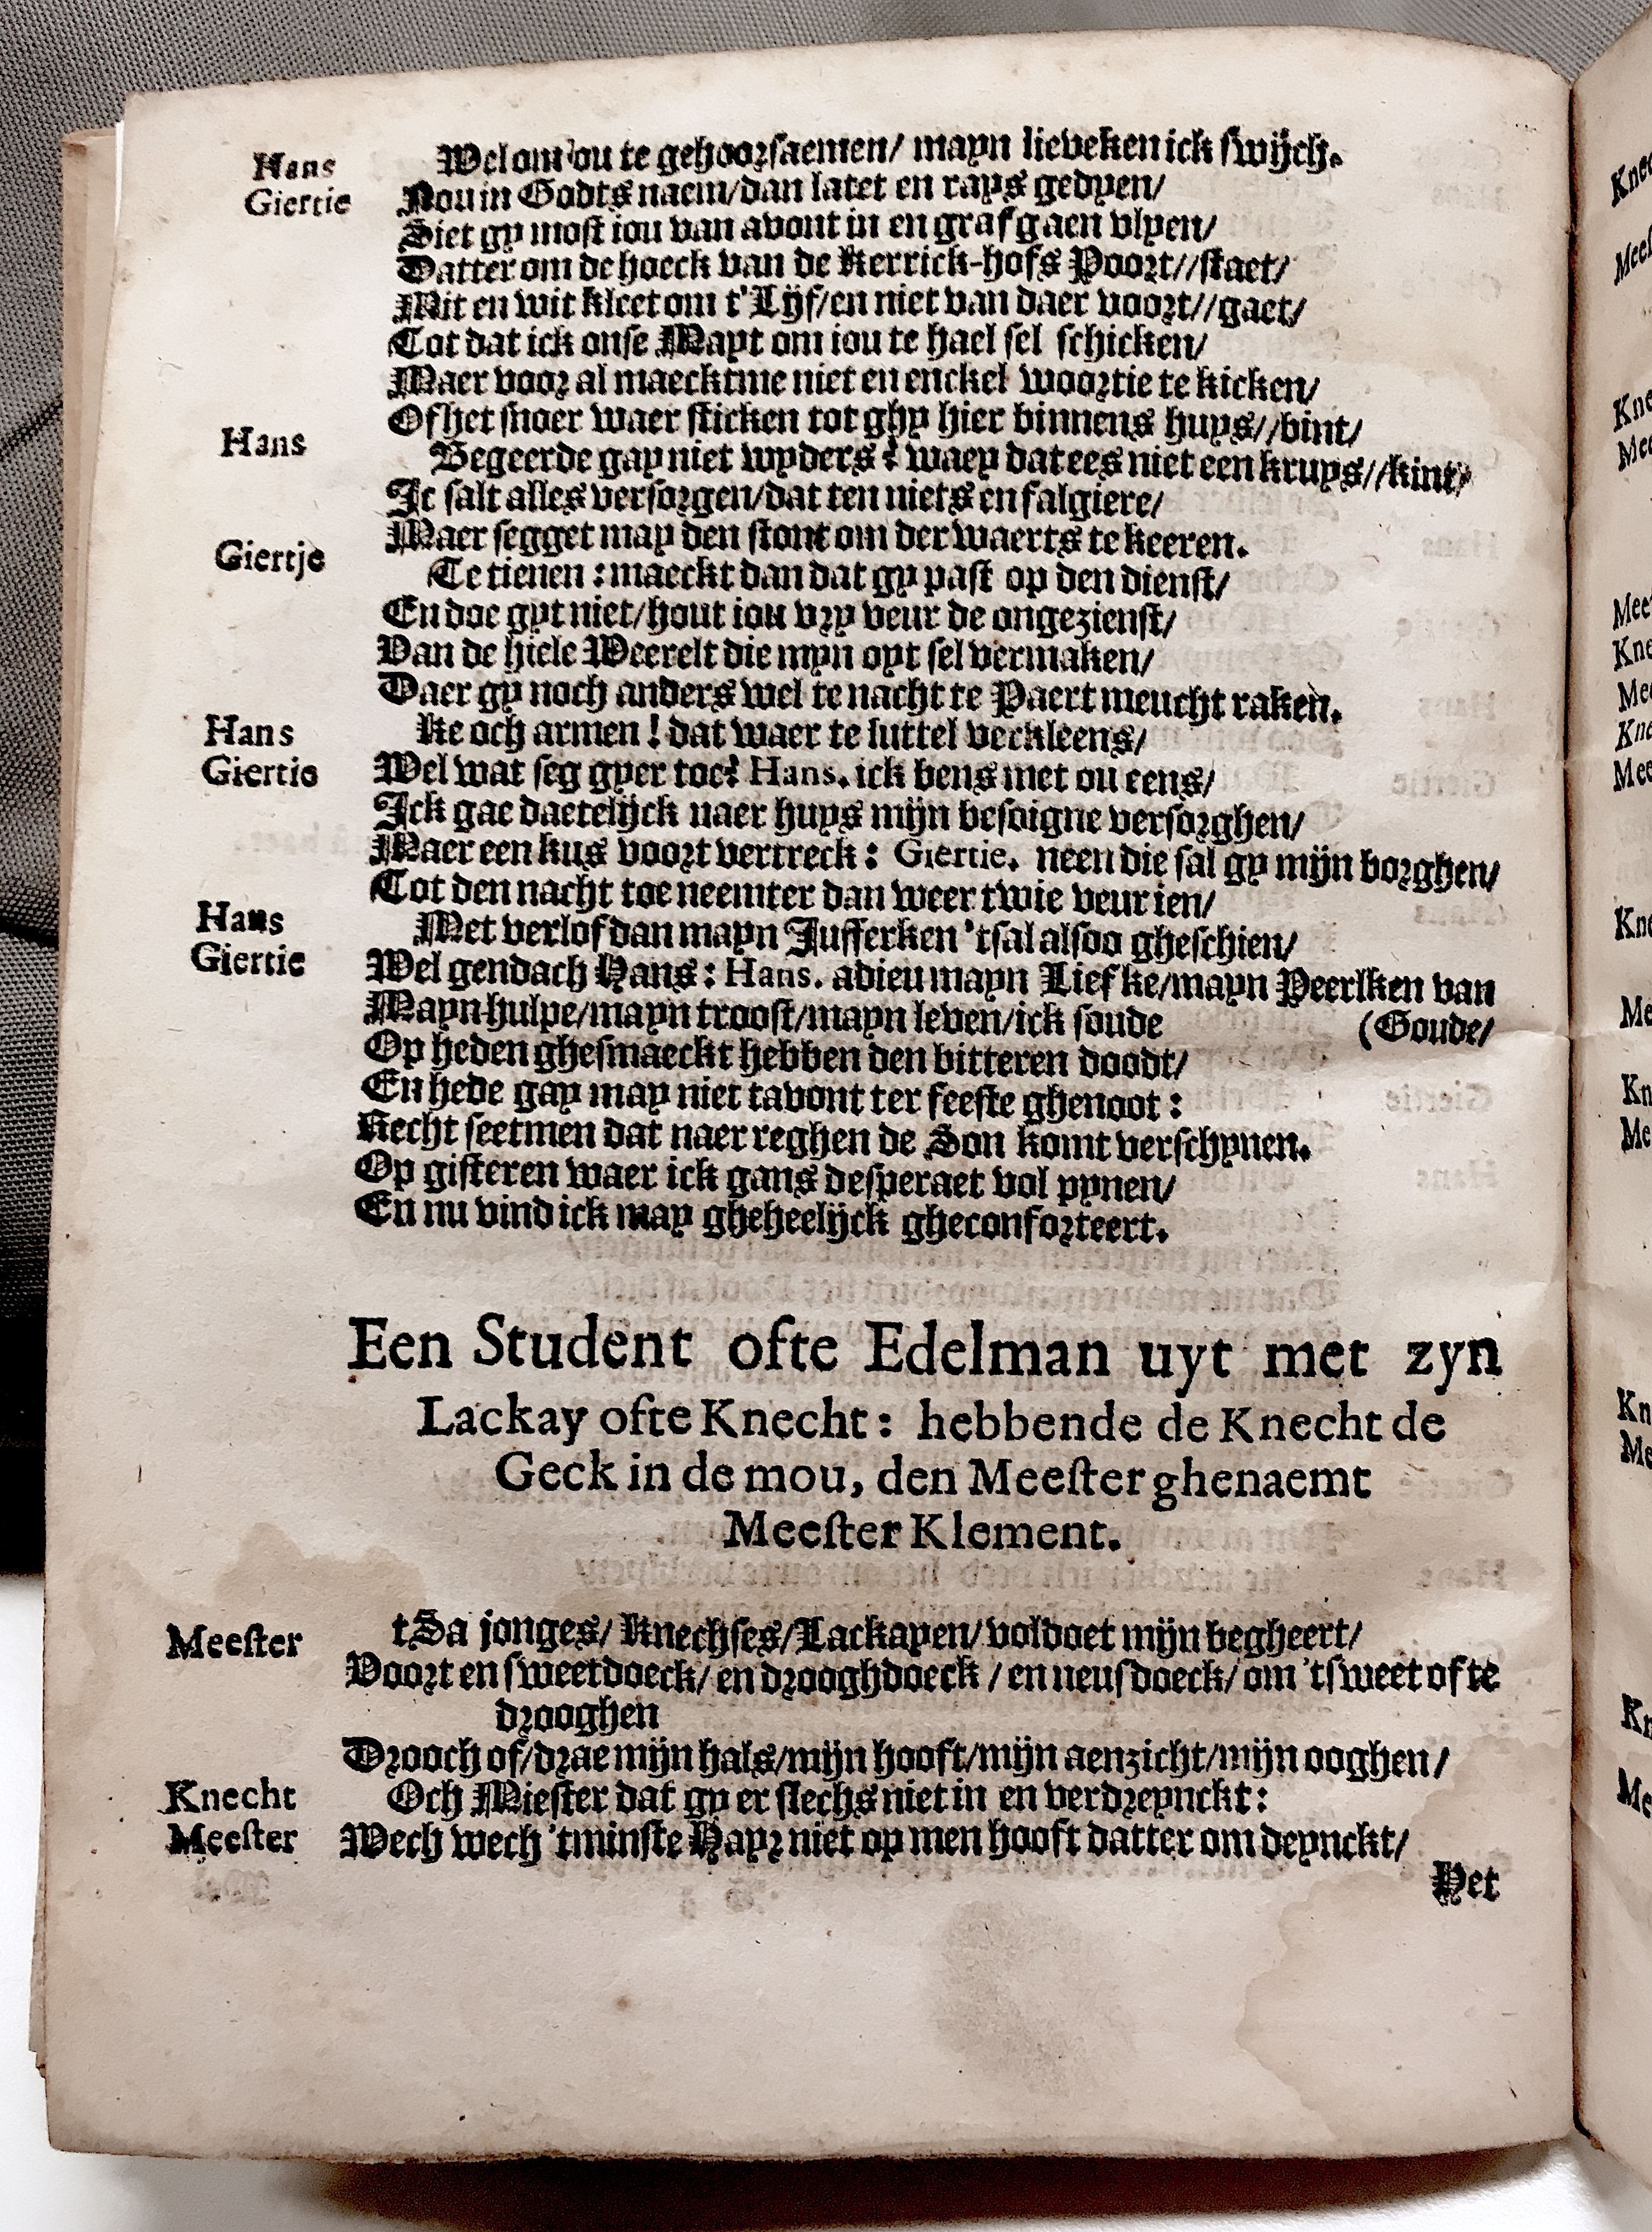 Hans Wel om ou te gehoorsaemen/ mayn lieveken ick swijch.
Giertie Nou in Godts naem/dan latet en rays gedyen/
Siet gy most iou van avont in en graf gaen vlyen/
Datter om de hoeck van de Kerrick-hofs Poort//staet/
Mit en wit kleet om t'Lijf/en niet van daer voort//gaet/
Tot dat ick onse Mayt om iou te hael sel schicken/
Maer voor al maecktme niet en enckel woortie te kicken/
Of het snoer waer sticken tot ghy hier binnens huys//bint/
Hans Begeerde gay niet wyders? waey dat ees niet een kruys//kint/
Ic salt alles versorgen/dat ten niets en falgiere/
Maer segget may den stont om derwaerts te keeren.
Giertje Te tienen: maeckt dan dat gy past op den dienst/
En doe gyt niet/hout iou vry veur de ongezienst/
Van de hiele Weerelt die myn oyt sel vermaken/
Daer gy noch anders wel te nacht te Paert meucht raken.
Hans Ke och armen! dat waer te luttel verkleens/
Giertie Wel wat seg gyer toe? Hans. ick bens met ou eens/
Ick gae daetelijck naer huys mijn besoigne versorghen/
Maer een kus voort vertreck: Giertie. neen die sal gy mijn borghen/
Tot den nacht toe neemter dan weer twie veur ien/
Hans Met verlof dan mayn Jufferken 'tsal alsoo gheschien/
Giertie Wel gendach Hans: Hans. adieu mayn Liefke/mayn Peerlken van
Mayn hulpe/mayn troost/mayn leven/ick soude (Goude/
Op heden ghesmaeckt hebben den bitteren doodt/
En hede gay may niet tavont ter feeste ghenoot:
Recht seetmen dat naer reghen de Son komt verschynen.
Op gisteren waer ick gans desperaet vol pynen/
En nu vind ick may gheheelijck gheconforteert.
Een Student ofte Edelman uyt met zyn
Lackay ofte Knecht: hebbende de Knecht de
Geck in de mou, den Meester ghenaemt
Meester Klement.
Meester tSa jonges/ Knechses/Lackayen/ voldoet mijn begheert/
Voort en sweetdoeck/ en drooghdoeck / en neusdoeck/ om 'tsweet of te
drooghen
Drooch of/drae mijn hals/mijn hooft/mijn aenzicht/mijn ooghen/
Knecht Och Miester dat gy er slechs niet in en verdreynckt:
Meester Wech wech 'tminste Hayr niet op men hooft datter om deynckt/
Het